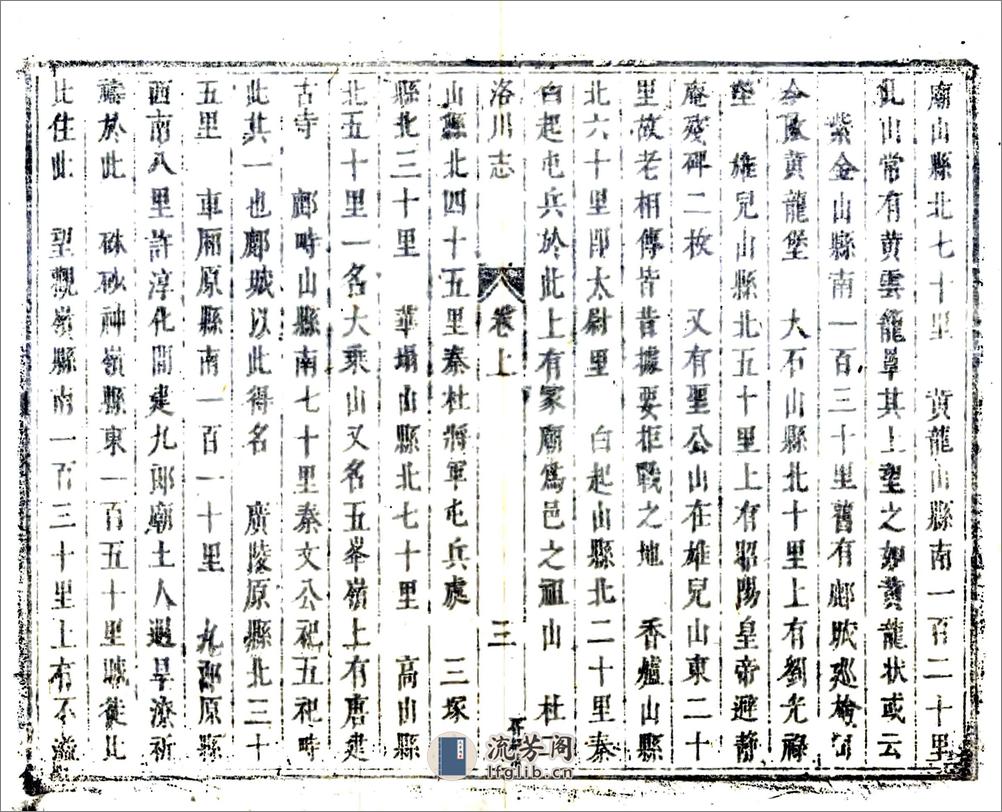 廟山縣北七十里　黃龍山縣南一百二十里
此山常有黃雲籠罩其上望之如黃龍狀或云
紫金山縣南一百三十里舊有鄜畂廵檢司
今改黃龍堡　大石山縣北十里上有劉光祿
塋　雄兒山縣北五十里上有昭陽皇帝避靜
庵殘碑二枚　又有聖公山在雄兒山東二十
里故老相傳皆昔據要拒戰之地　香爐山縣
北六十里即太尉里　白起山縣北二十里秦
白起屯兵於此上有冢廟爲邑之祖山　杜
洛川志　卷上　三
山縣北四十五里秦杜將軍屯兵處　三塚
縣北三十里　華塌山縣北七十里　高山縣
北五十里一名大乘山又名五峯嶺上有唐建
古寺　鄜畤山縣南七十里秦文公祀五祀時
此其一也鄜城以此得名　廣陵原縣北三十
五里　車廂原縣南一百一十里　九郎原縣
西南八里許淳化間建九郎廟土人遇旱潦祈
禱於此　硃砂神嶺縣東一百五十里城徙北
比住此　望觀嶺縣南一百三十里上有不溢
流芳阁
lfglib.cn